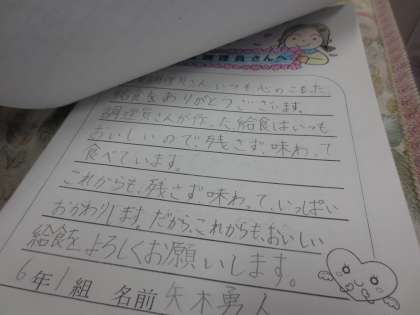 調理員さんへ
調理員さんいつも心のこもった
給食をありがとうございます。
調理員さんが作った給食はいつも
おいしいので、残さず味わって
食べています。
これからも、残さず味わって、いっぱい
おかわりします。だから、これからも、おいしい
給食をよろしくお願いします。
6年1組 名前 矢木勇人